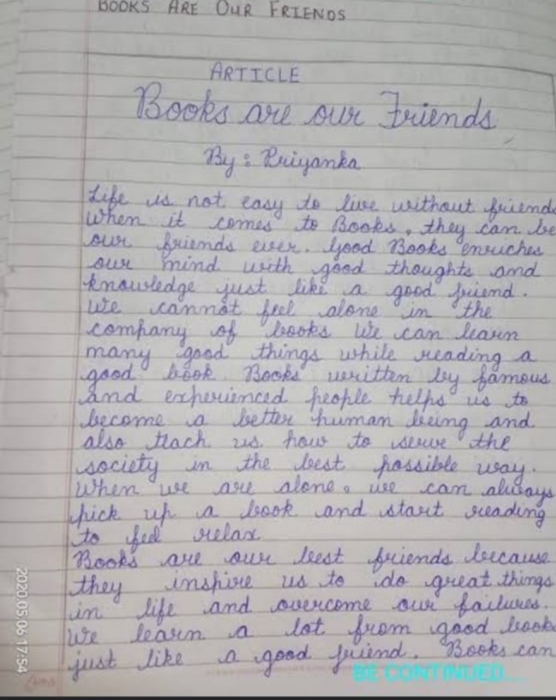 BOOKS ARE OUR FRIENDS
ARTICLE
Books are our Friends
By : Priyanka
Life is not easy to live without friends
When it comes to Books, they can be
our friends ever. Good Books enriches
our mind with good thoughts and
knowledge just like a good friend.
We cannot feel alone in the
company of books We can learn
many good things while reading a
good book Books written by famous
and experienced people helps us to
become a better human being and
also teach us how to serve the
society in the best possible way.
When we are alone, we can always
pick up a book and start reading
to feel relax
Books are our best friends because
they inspire us to do great things
in life and overcome our failures.
We learn a lot from good books
just like a good friend. Books can
BE CONTINUED...
2020.05.06 17:54